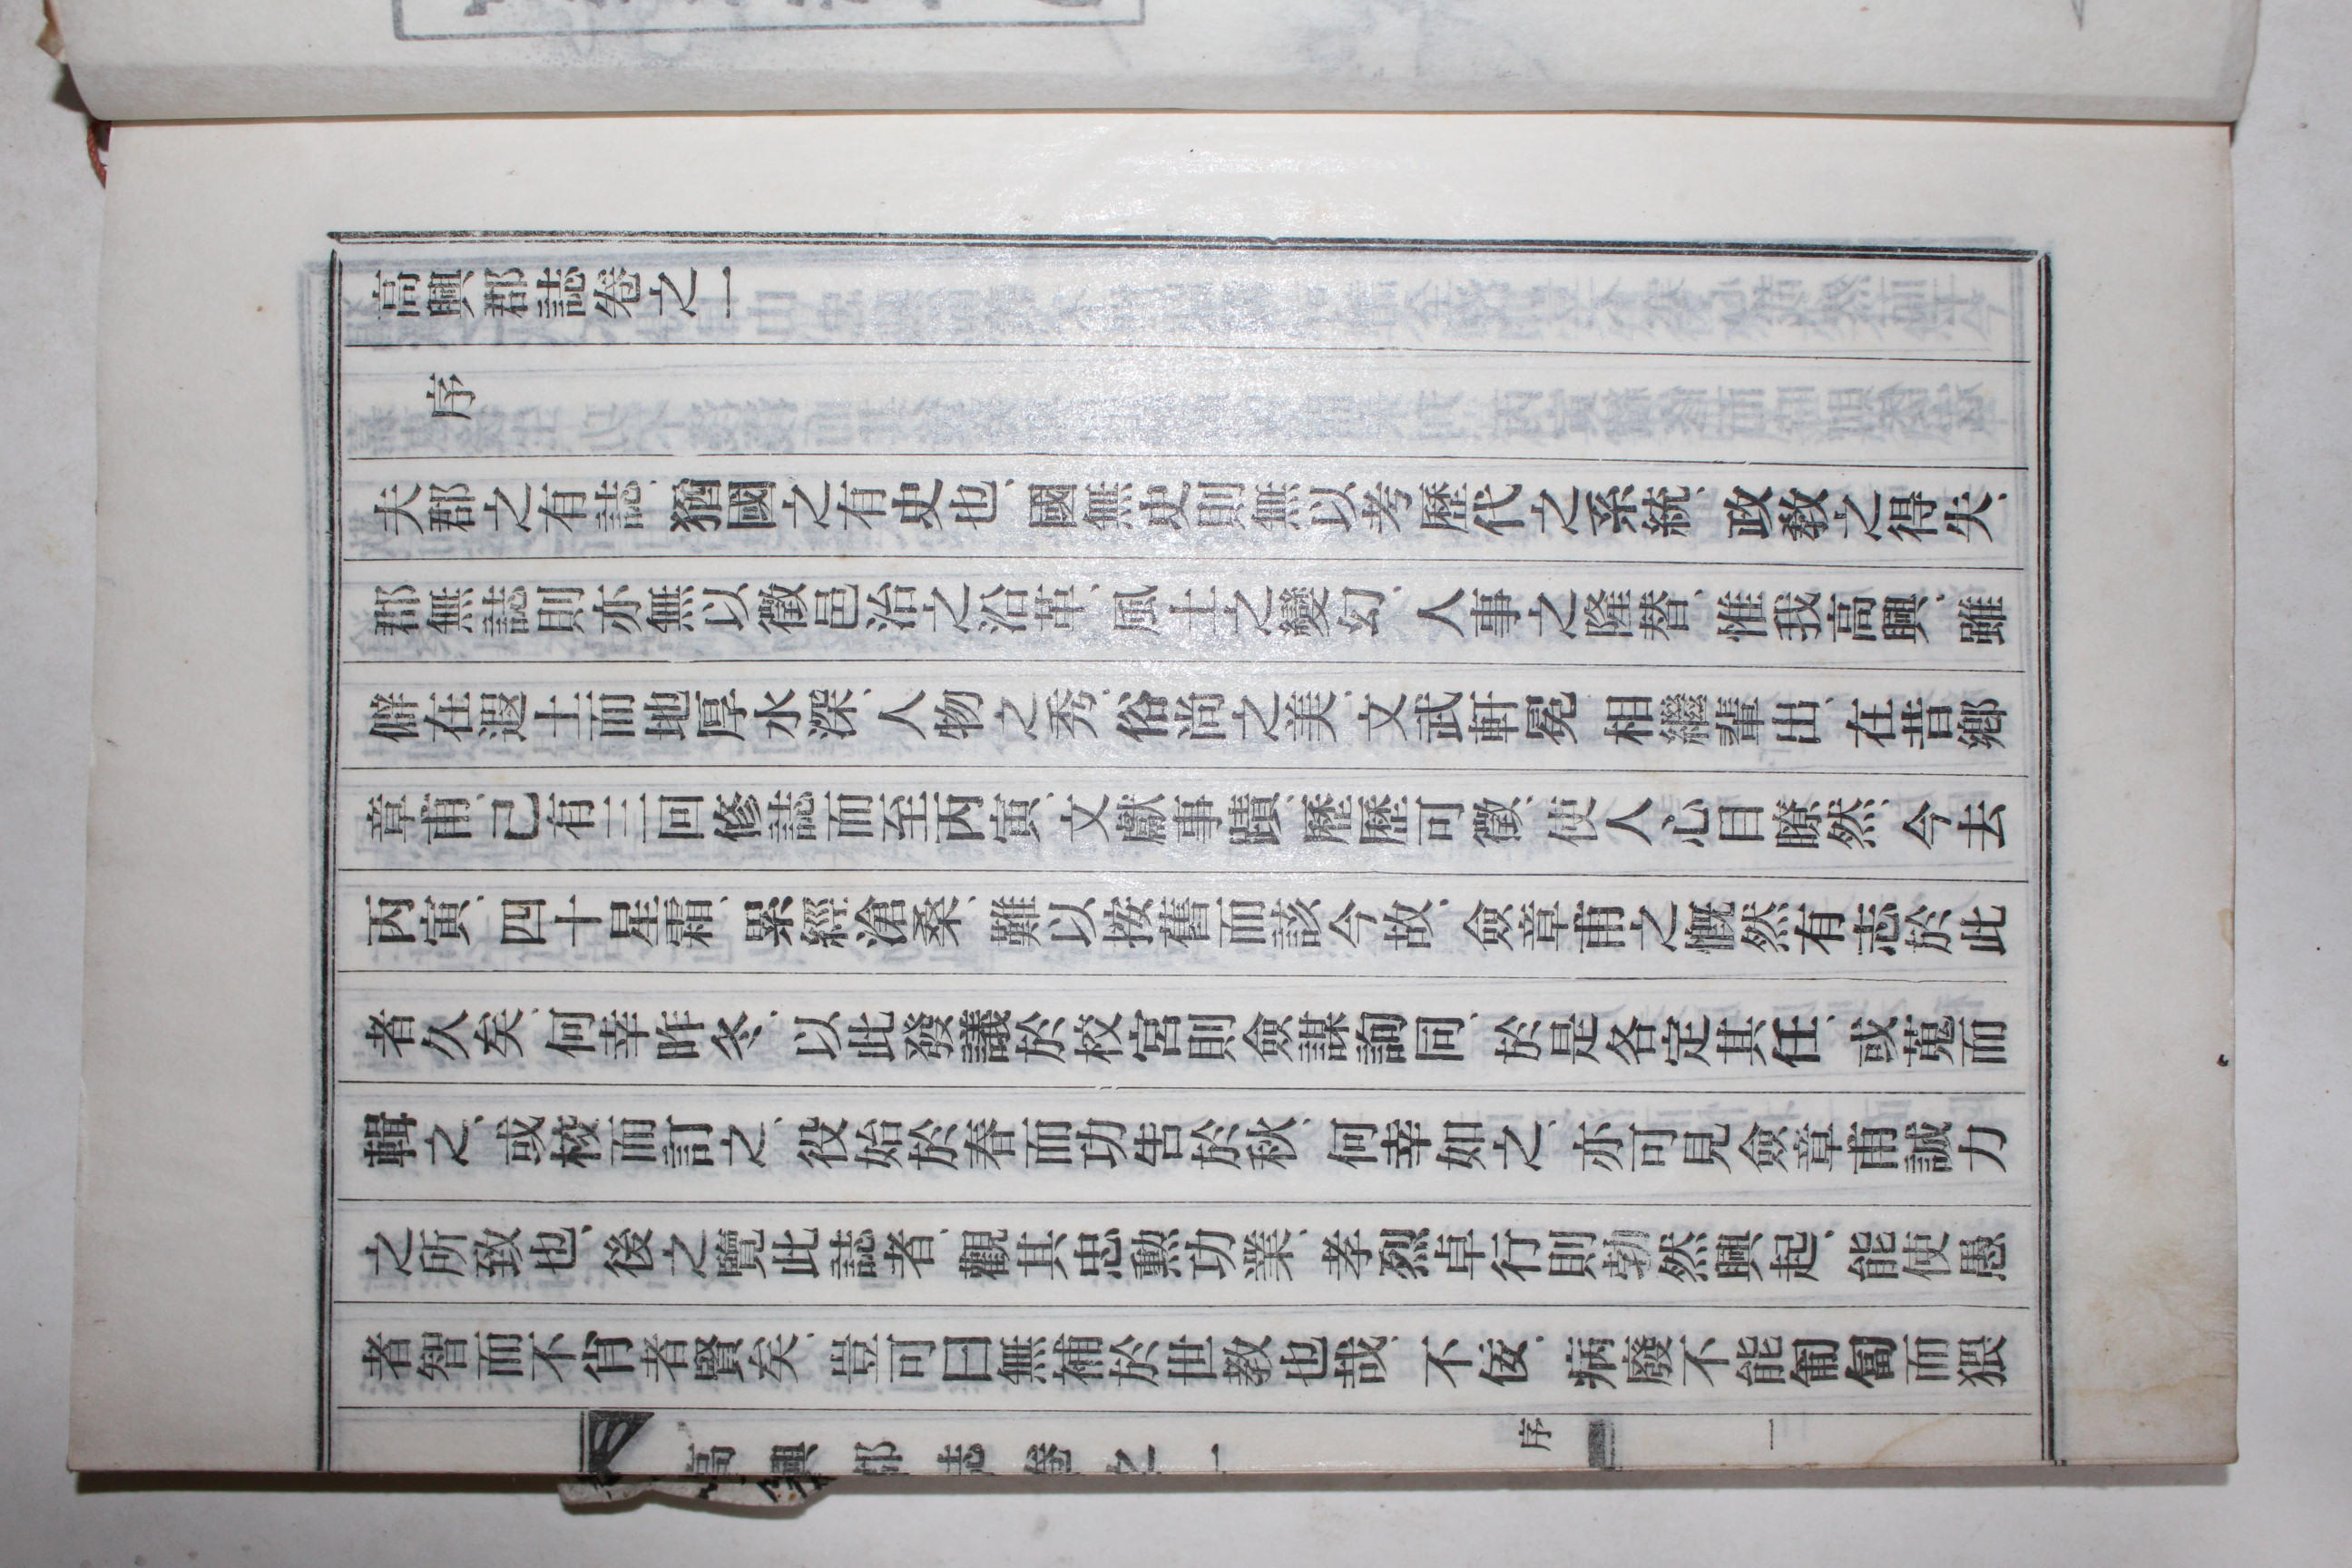 高興郡誌卷之一
序
夫郡之有誌、猶國之有史也、國無史則無以考歷代之系統、政敎之得失、
郡無誌則亦無以徵邑治之沿革、風土之變幻、人事之隆替、惟我高興、雖
僻在遐土而地厚水深、人物之秀、俗尙之美、文武軒冕、相繼輩出、在昔鄕
章甫、已有三回修誌而至丙寅、文獻事蹟、歷歷可徵、使人心目瞭然、今去
丙寅、四十星霜、累經滄桑、難以按舊而該今故、僉章甫之慨然有志於此
者久矣、何幸昨冬、以此發議於校宮則僉謀詢同、於是各定其任、或蒐而
輯之、或校而訂之、役始於春而功告於秋、何幸如之、亦可見僉章甫誠力
之所致也、後之覽此誌者、觀其忠勳功業、孝烈卓行則勃然興起、能使愚
者智而不肖者賢矣、豈可曰無補於世敎也哉、不佞、病廢不能匍匐而猥
高興郡誌卷之一 序 一